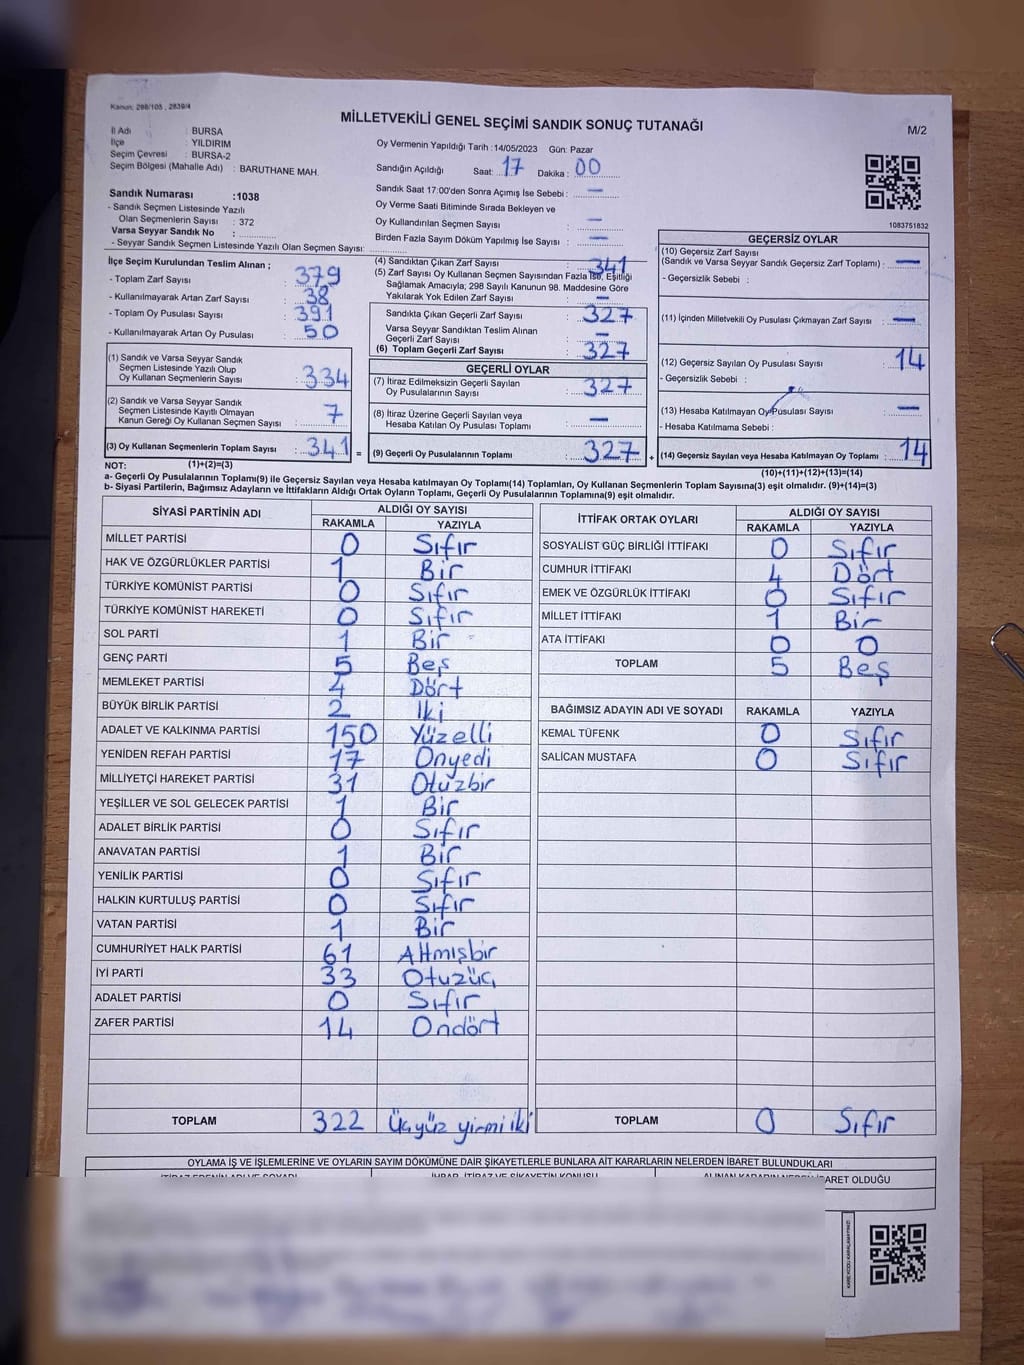 Kanun: 298/105 , 2839/4
MİLLETVEKİLİ GENEL SEÇİMİ SANDIK SONUÇ TUTANAĞI
M/2
İl Adı : BURSA
İlçe : YILDIRIM
Seçim Çevresi : BURSA-2
Seçim Bölgesi (Mahalle Adı) : BARUTHANE MAH.
Oy Vermenin Yapıldığı Tarih :14/05/2023 Gün: Pazar
Sandığın Açıldığı Saat: 17 Dakika : 00
Sandık Saat 17:00'den Sonra Açımış İse Sebebi : —
Oy Verme Saati Bitiminde Sırada Bekleyen ve
Oy Kullandırılan Seçmen Sayısı : —
Birden Fazla Sayım Döküm Yapılmış İse Sayısı : —
1083751832
Sandık Numarası :1038
- Sandık Seçmen Listesinde Yazılı
Olan Seçmenlerin Sayısı : 372
Varsa Seyyar Sandık No :
- Seyyar Sandık Seçmen Listesinde Yazılı Olan Seçmen Sayısı:
İlçe Seçim Kurulundan Teslim Alınan ;
- Toplam Zarf Sayısı : 379
- Kullanılmayarak Artan Zarf Sayısı : 38
- Toplam Oy Pusulası Sayısı : 391
- Kullanılmayarak Artan Oy Pusulası : 50
(1) Sandık ve Varsa Seyyar Sandık
Seçmen Listesinde Yazılı Olup
Oy Kullanan Seçmenlerin Sayısı : 334
(2) Sandık ve Varsa Seyyar Sandık
Seçmen Listesinde Kayıtlı Olmayan
Kanun Gereği Oy Kullanan Seçmen Sayısı : 7
(3) Oy Kullanan Seçmenlerin Toplam Sayısı : 341 =
(4) Sandıktan Çıkan Zarf Sayısı : 341
(5) Zarf Sayısı Oy Kullanan Seçmen Sayısından Fazla İse, Eşitliği
Sağlamak Amacıyla; 298 Sayılı Kanunun 98. Maddesine Göre
Yakılarak Yok Edilen Zarf Sayısı : —
Sandıkta Çıkan Geçerli Zarf Sayısı : 327
Varsa Seyyar Sandıktan Teslim Alınan
Geçerli Zarf Sayısı : —
(6) Toplam Geçerli Zarf Sayısı : 327
GEÇERLİ OYLAR
(7) İtiraz Edilmeksizin Geçerli Sayılan
Oy Pusulalarının Sayısı : 327
(8) İtiraz Üzerine Geçerli Sayılan veya
Hesaba Katılan Oy Pusulası Toplamı : —
(9) Geçerli Oy Pusulalarının Toplamı : 327 +
GEÇERSİZ OYLAR
(10) Geçersiz Zarf Sayısı
(Sandık ve Varsa Seyyar Sandık Geçersiz Zarf Toplamı) : —
- Geçersizlik Sebebi :
(11) İçinden Milletvekili Oy Pusulası Çıkmayan Zarf Sayısı : —
(12) Geçersiz Sayılan Oy Pusulası Sayısı : 14
- Geçersizlik Sebebi :
(13) Hesaba Katılmayan Oy Pusulası Sayısı : —
- Hesaba Katılmama Sebebi :
(14) Geçersiz Sayılan veya Hesaba Katılmayan Oy Toplamı : 14
NOT: (1)+(2)=(3)
(10)+(11)+(12)+(13)=(14)
a- Geçerli Oy Pusulalarının Toplamı(9) ile Geçersiz Sayılan veya Hesaba katılmayan Oy Toplamı(14) Toplamları, Oy Kullanan Seçmenlerin Toplam Sayısına(3) eşit olmalıdır. (9)+(14)=(3)
b- Siyasi Partilerin, Bağımsız Adayların ve İttifakların Aldığı Ortak Oyların Toplamı, Geçerli Oy Pusulalarının Toplamına(9) eşit olmalıdır.
SİYASİ PARTİNİN ADI ALDIĞI OY SAYISI
RAKAMLA YAZIYLA
MİLLET PARTİSİ 0 Sıfır
HAK VE ÖZGÜRLÜKLER PARTİSİ 1 Bir
TÜRKİYE KOMÜNİST PARTİSİ 0 Sıfır
TÜRKİYE KOMÜNİST HAREKETİ 0 Sıfır
SOL PARTİ 1 Bir
GENÇ PARTİ 5 Beş
MEMLEKET PARTİSİ 4 Dört
BÜYÜK BİRLİK PARTİSİ 2 İki
ADALET VE KALKINMA PARTİSİ 150 Yüzelli
YENİDEN REFAH PARTİSİ 17 Onyedi
MİLLİYETÇİ HAREKET PARTİSİ 31 Otuzbir
YEŞİLLER VE SOL GELECEK PARTİSİ 1 Bir
ADALET BİRLİK PARTİSİ 0 Sıfır
ANAVATAN PARTİSİ 1 Bir
YENİLİK PARTİSİ 0 Sıfır
HALKIN KURTULUŞ PARTİSİ 0 Sıfır
VATAN PARTİSİ 1 Bir
CUMHURİYET HALK PARTİSİ 61 Altmışbir
İYİ PARTİ 33 Otuzüç
ADALET PARTİSİ 0 Sıfır
ZAFER PARTİSİ 14 Ondört
TOPLAM 322 Üçyüz yirmi iki
İTTİFAK ORTAK OYLARI ALDIĞI OY SAYISI
RAKAMLA YAZIYLA
SOSYALİST GÜÇ BİRLİĞİ İTTİFAKI 0 Sıfır
CUMHUR İTTİFAKI 4 Dört
EMEK VE ÖZGÜRLÜK İTTİFAKI 0 Sıfır
MİLLET İTTİFAKI 1 Bir
ATA İTTİFAKI 0 0
TOPLAM 5 Beş
BAĞIMSIZ ADAYIN ADI VE SOYADI RAKAMLA YAZIYLA
KEMAL TÜFENK 0 Sıfır
SALİCAN MUSTAFA 0 Sıfır
TOPLAM 0 Sıfır
OYLAMA İŞ VE İŞLEMLERİNE VE OYLARIN SAYIM DÖKÜMÜNE DAİR ŞİKAYETLERLE BUNLARA AİT KARARLARIN NELERDEN İBARET BULUNDUKLARI
İBARET OLDUĞU